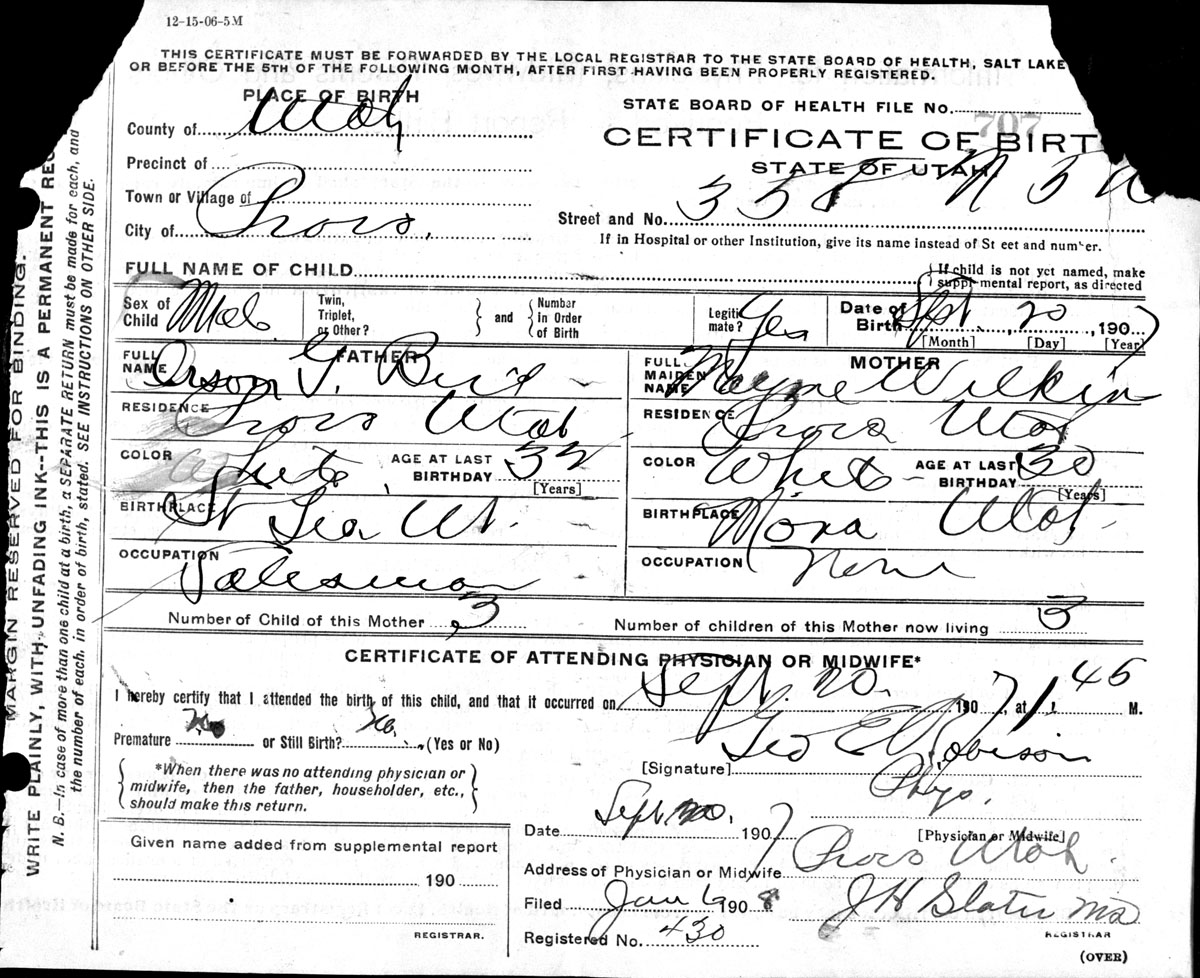 12-15-06-5M
THIS CERTIFICATE MUST BE FORWARDED BY THE LOCAL REGISTRAR TO THE STATE BOARD OF HEALTH, SALT LAKE
OR BEFORE THE 5TH OF THE FOLLOWING MONTH, AFTER FIRST HAVING BEEN PROPERLY REGISTERED.
PLACE OF BIRTH
County of Utah
Precinct of
Town or Village of
City of Provo.
STATE BOARD OF HEALTH FILE No.
707
CERTIFICATE OF BIRT
STATE OF UTAH
Street and No. 338 N 5 W
If in Hospital or other Institution, give its name instead of St eet and number.
FULL NAME OF CHILD
If child is not yet named, make
supplemental report, as directed
Sex of Child Male
Twin, Triplet, or Other?
and
Number in Order of Birth
Legiti mate? Yes
Date of Birth Sept. 20, 1907
[Month] [Day] [Year]
FATHER
FULL NAME Orson G. Bird
RESIDENCE Provo Utah
COLOR White
AGE AT LAST BIRTHDAY 33
[Years]
BIRTHPLACE St Geo Ut.
OCCUPATION Salesman
MOTHER
FULL MAIDEN NAME Mayne Wilkin
RESIDENCE Provo Utah
COLOR White
AGE AT LAST BIRTHDAY 30
[Years]
BIRTHPLACE Mona Utah
OCCUPATION None
Number of Child of this Mother 3
Number of children of this Mother now living 3
CERTIFICATE OF ATTENDING PHYSICIAN OR MIDWIFE*
I hereby certify that I attended the birth of this child, and that it occurred on Sept. 20. 1907, at 1.45 M.
Premature No or Still Birth? No. (Yes or No)
*When there was no attending physician or
midwife, then the father, householder, etc.,
should make this return.
[Signature] Geo E Robison
Phys.
[Physician or Midwife]
Date Sept 20. 1907
Address of Physician or Midwife Provo Utah.
Given name added from supplemental report
190
REGISTRAR.
Filed Jan 6 1908
J H Slater MD
REGISTRAR
Registered No. 430
(OVER)
MARGIN RESERVED FOR BINDING.
WRITE PLAINLY, WITH UNFADING INK--THIS IS A PERMANENT REC
N. B.—In case of more than one child at a birth, a SEPARATE RETURN must be made for each, and
the number of each, in order of birth, stated. SEE INSTRUCTIONS ON OTHER SIDE.